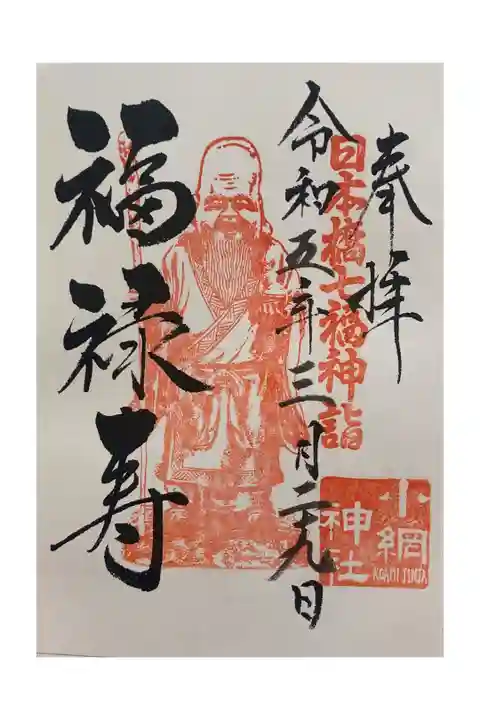 奉拝
日本橋七福神詣
令和五年三月二十九日
福禄寿
小網
神社
KOAMI JINJA